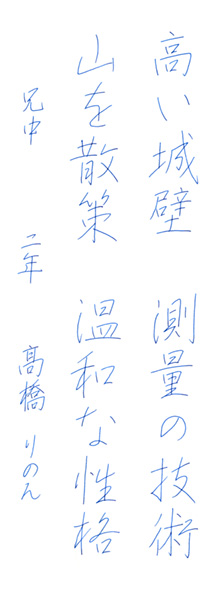 高い城壁　測量の技術
山を散策　温和な性格
兄中　二年　髙橋りのん